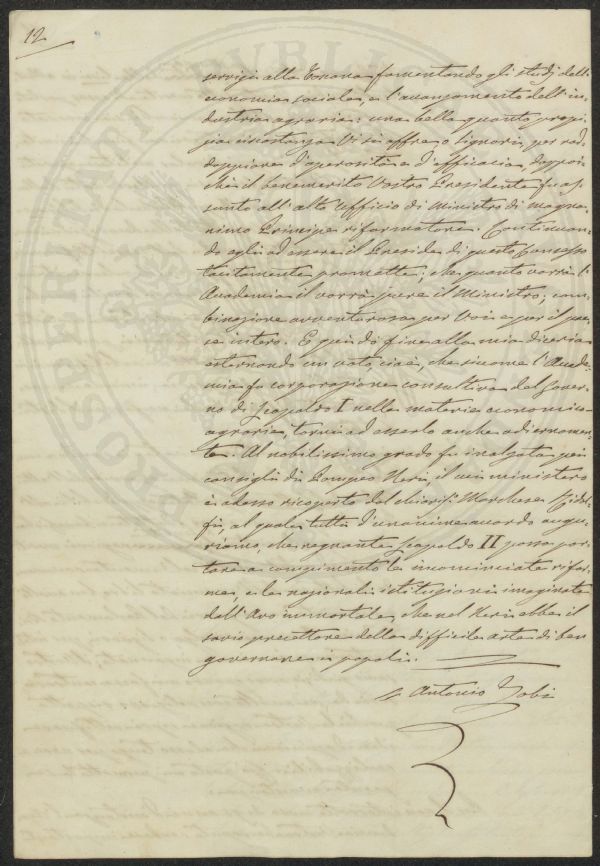 12
servigi alla Toscana fomentando gli studj dell'
economia sociale, e l'avanzamento dell'in-
dustria agraria: una bella quanto propi-
zia circostanza Vi si offre o Signori, per rad-
doppiare d'operosità e d'efficacia, dappoi-
chè il benemerito Vostro Presidente fu as-
sunto all'alto Ufficio di Ministro di magna-
nimo Principe riformatore. Continuan-
do egli ad essere il Preside di questo Consesso
tacitamente promette, che quanto vorrà l'
Accademia il vorrà pure il Ministro; com-
binazione avventurosa per Voi e per il pae-
se intero. E quindi fine alla mia diceria
esternando un voto, cioè, che siccome l'Accade-
mia fu corporazione consultiva del Gover-
no di Leopoldo I nelle materie economico-
agrarie, torni ad esserlo anche odiernamen-
te. Al nobilissimo grado fu inalzata pei
consigli di Pompeo Neri, il cui ministero
è adesso ricoperto dal chiariss. Marchese Ridol-
fi, al quale tutti d'unanime accordo augu-
riamo, che regnante Leopoldo II possa por-
tare a compimento le incominciate rifor-
me, e le nazionali istituzioni imaginate
dall'Avo immortale, che nel Neri ebbe il
savio precettore della difficile arte di ben
governare i popoli.
Antonio Zobi
PROSPERITATI PUBLI